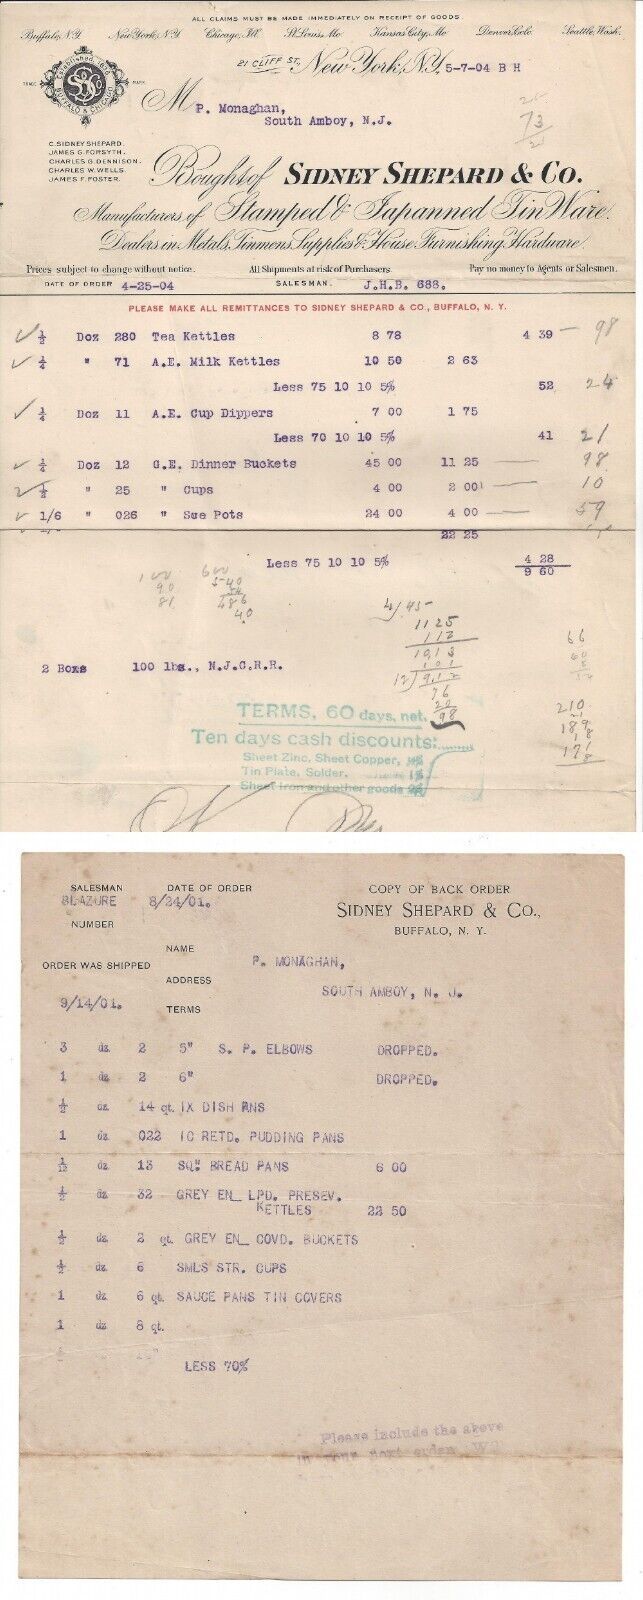 ALL CLAIMS MUST BE MADE IMMEDIATELY ON RECEIPT OF GOODS
Buffalo, N.Y. New York, N.Y. Chicago, Ill. St Louis, Mo. Kansas City, Mo. Denver, Colo. Seattle, Wash.
21 CLIFF ST., New York, N.Y. 5-7-04 B H
Established 1836
TRADE MARK
BUFFALO & CHICAGO
M P. Monaghan,
South Amboy, N.J.
25
73
21
C. SIDNEY SHEPARD.
JAMES G. FORSYTH.
CHARLES G. DENNISON.
CHARLES W. WELLS.
JAMES F. FOSTER.
Bought of SIDNEY SHEPARD & CO.
Manufacturers of Stamped & Japanned Tin Ware.
Dealers in Metals, Tinmens Supplies & House Furnishing Hardware.
Prices subject to change without notice. All Shipments at risk of Purchasers. Pay no money to Agents or Salesmen.
DATE OF ORDER 4-25-04 SALESMAN J.H.B. 688.
PLEASE MAKE ALL REMITTANCES TO SIDNEY SHEPARD & CO., BUFFALO, N. Y.
✓ ½ Doz 280 Tea Kettles 8 78 4 39 — 98
✓ ¼ " 71 A.E. Milk Kettles 10 50 2 63
Less 75 10 10 5% 52 24
✓ ¼ Doz 11 A.E. Cup Dippers 7 00 1 75
Less 70 10 10 5% 41 21
✓ ¼ Doz 12 G.E. Dinner Buckets 45 00 11 25 — 98
✓ ½ " 25 " Cups 4 00 2 00 — 10
✓ 1/6 " 026 " Sue Pots 24 00 4 00 — 59
22 25
Less 75 10 10 5% 4 28
9 60
100
90
81
600
540
54
486
40
4/45
1125
112
1013
101
12/912
76
20
98
66
60
5
54
210
21
189
18
171
8
2 Boxs 100 lbs., N.J.C.R.R.
TERMS, 60 days, net.
Ten days cash discounts:
Sheet Zinc, Sheet Copper,
Tin Plate, Solder.
Sheet Iron and other goods
SALESMAN DATE OF ORDER COPY OF BACK ORDER
BLAZURE 8/24/01. SIDNEY SHEPARD & CO.,
NUMBER BUFFALO, N. Y.
NAME P. MONAGHAN,
ORDER WAS SHIPPED
ADDRESS SOUTH AMBOY, N. J.
9/14/01. TERMS
3 dz. 2 5" S. P. ELBOWS DROPPED.
1 dz. 2 6" DROPPED.
½ dz. 14 qt. IX DISH PANS
1 dz. 022 IC RETD. PUDDING PANS
1/12 dz. 13 SQ" BREAD PANS 6 00
½ dz. 32 GREY EN_ LPD. PRESEV.
KETTLES 22 50
½ dz. 2 qt. GREY EN_ COVD. BUCKETS
½ dz. 6 SMLS STR. CUPS
1 dz. 6 qt. SAUCE PANS TIN COVERS
1 dz. 8 qt.
LESS 70%
Please include the above
in your next order.